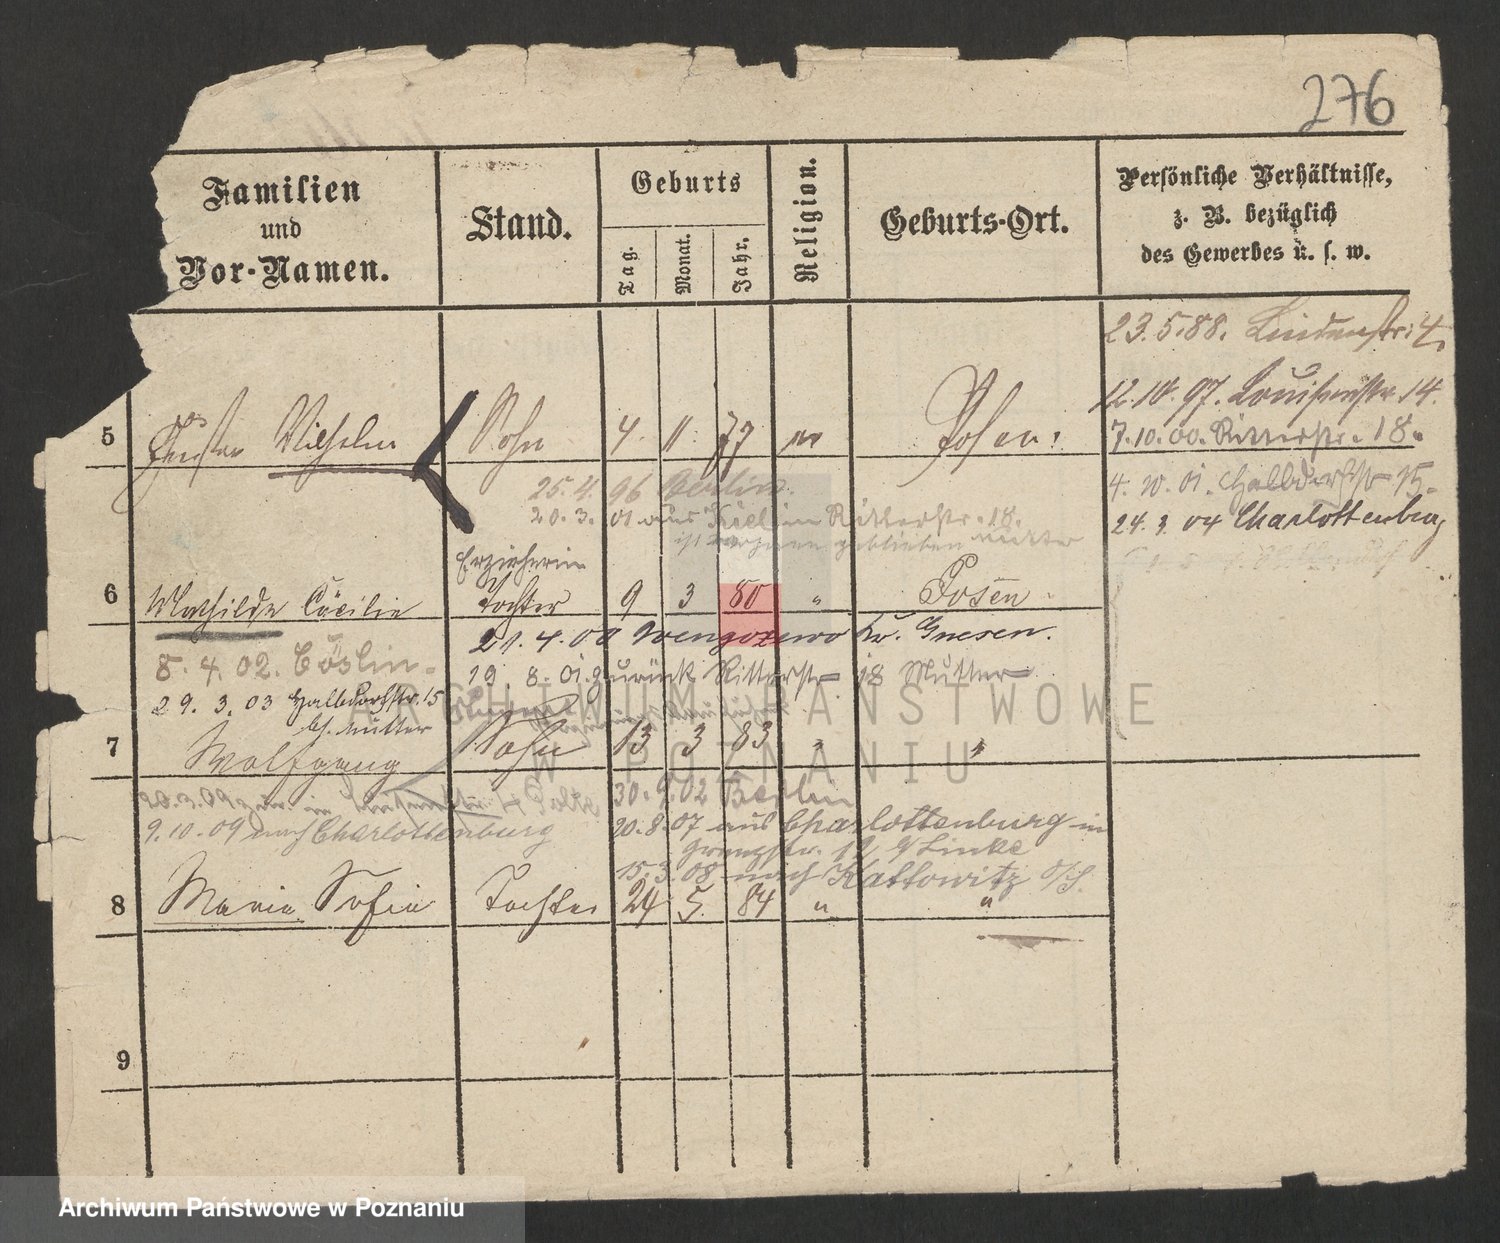 276
Familien
und
Vor-Namen.
Stand.
Geburts
Tag.
Monat.
Jahr.
Religion.
Geburts-Ort.
Persönliche Verhältnisse,
z. B. bezüglich
des Gewerbes u. s. w.
23.5.88. Lindenstr: 4.
12.10.97. Louisenstr. 14.
5 Wilhelm Sohn 4 11 77 Posen.
7.10.00. Ritterstr. 18.
25.4.96 Berlin.
4.10.01. Halbdorfstr 15.
20.3.01 aus Kiel in Ritterstr. 18.
24.3.04 Charlottenburg
geblieben Mutter
Erzieherin
6 Mathilde Cäcilie Tochter 9 3 80 " Posen
21.4.00 Wengorzewo Kr. Gnesen.
8.4.02. Cöslin.
19.8.01. zurück Ritterstr 18 Mutter
29.3.03 Halbdorfstr. 15
b/. Mutter
7 Wolfgang Sohn 13 3 83 " "
30.9.02 Berlin
9.10.09 nach Charlottenburg
20.8.07 aus Charlottenburg in
12 b/ Linke
15.3.08 nach Kattowitz O/S.
8 Maria Sofia Tochter 24 5 84 " "
9
ARCHIWUM PAŃSTWOWE
W POZNANIU
Archiwum Państwowe w Poznaniu